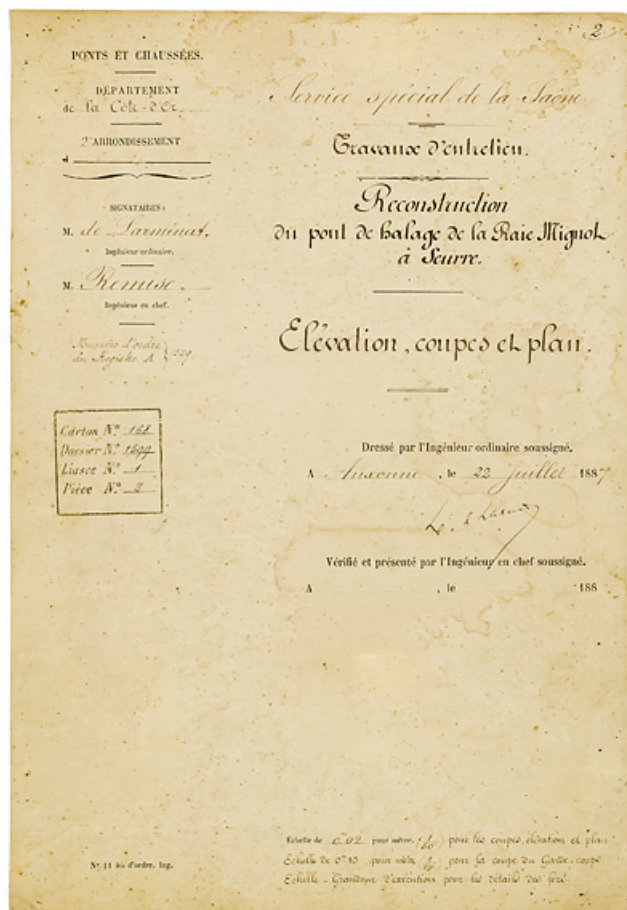 2
PONTS ET CHAUSSÉES.
DÉPARTEMENT
de la Côte-d'Or
2e ARRONDISSEMENT
SIGNATAIRES :
M. de Larminat.
Ingénieur ordinaire.
M. Remise.
Ingénieur en chef.
Numéro d'ordre
du Registre A 1529
Carton N° 168
Dossier N° 1599
Liasse N° 1
Pièce N° 2
N° 11 bis d'ordre. Ing.
Service spécial de la Saône
Travaux d'entretien.
Reconstruction
du pont de halage de la Raie Mignot
à Seurre.
Elévation, coupes et plan.
Dressé par l'Ingénieur ordinaire soussigné.
A Auxonne, le 22 juillet 1887
Vérifié et présenté par l'Ingénieur en chef soussigné.
A , le 188
Echelle de 0m02 pour mètre. pour les coupes, élévation et plan
Echelle de 0m10 pour mètre pour la coupe du Garde-corps
Echelle - Grandeur d'exécution pour les détails des fers